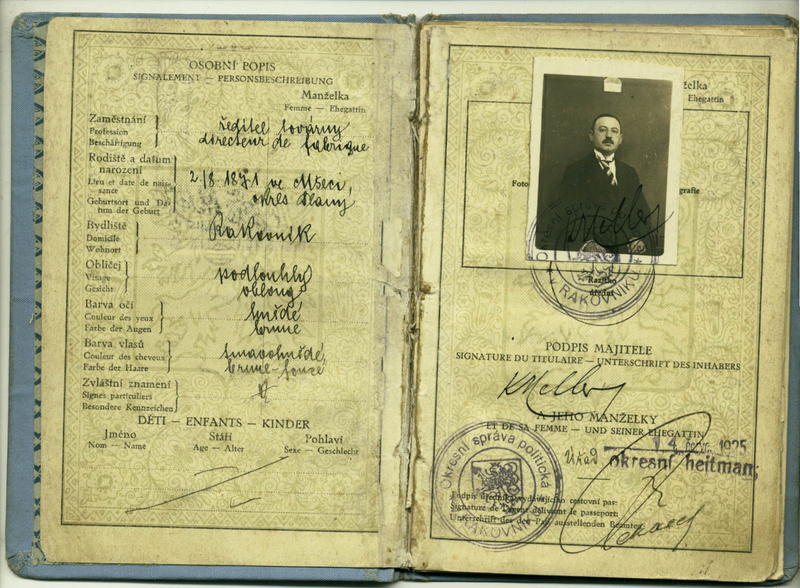 OSOBNÍ POPIS
SIGNALEMENT — PERSONSBESCHREIBUNG
Manželka
Femme — Ehegattin
Zaměstnání
Profession
Beschäftigung
ředitel továrny
directeur de fabrique
Rodiště a datum
narození
Lieu et date de nais-
sance
Geburtsort und Da-
tum der Geburt
2/8. 1871 ve Mšeci,
okres Slaný
Bydliště
Domicile
Wohnort
Rakovník
Obličej
Visage
Gesicht
podlouhlý
oblong
Barva očí
Couleur des yeux
Farbe der Augen
hnědé
brune
Barva vlasů
Couleur des cheveux
Farbe der Haare
tmavohnědé
brune-foncé
Zvláštní znamení
Signes particuliers
Besondere Kennzeichen
DĚTI — ENFANTS — KINDER
Jméno
Nom — Name
Stáří
Age — Alter
Pohlaví
Sexe — Geschlecht
želka
Ehegattin
Foto
grafie
Razítko
úřední
V RAKOVNÍKU
PODPIS MAJITELE
SIGNATURE DU TITULAIRE — UNTERSCHRIFT DES INHABERS
A JEHO MANŽELKY
ET DE SA FEMME — UND SEINER EHEGATTIN
1925
Úřad
okresní hejtman:
Okresní správa politická
V RAKOVNÍKU
Podpis úředníka vydávajícího cestovní pas:
Signature de l'agent délivrant le passeport:
Unterschrift des den Paß ausstellenden Beamten: